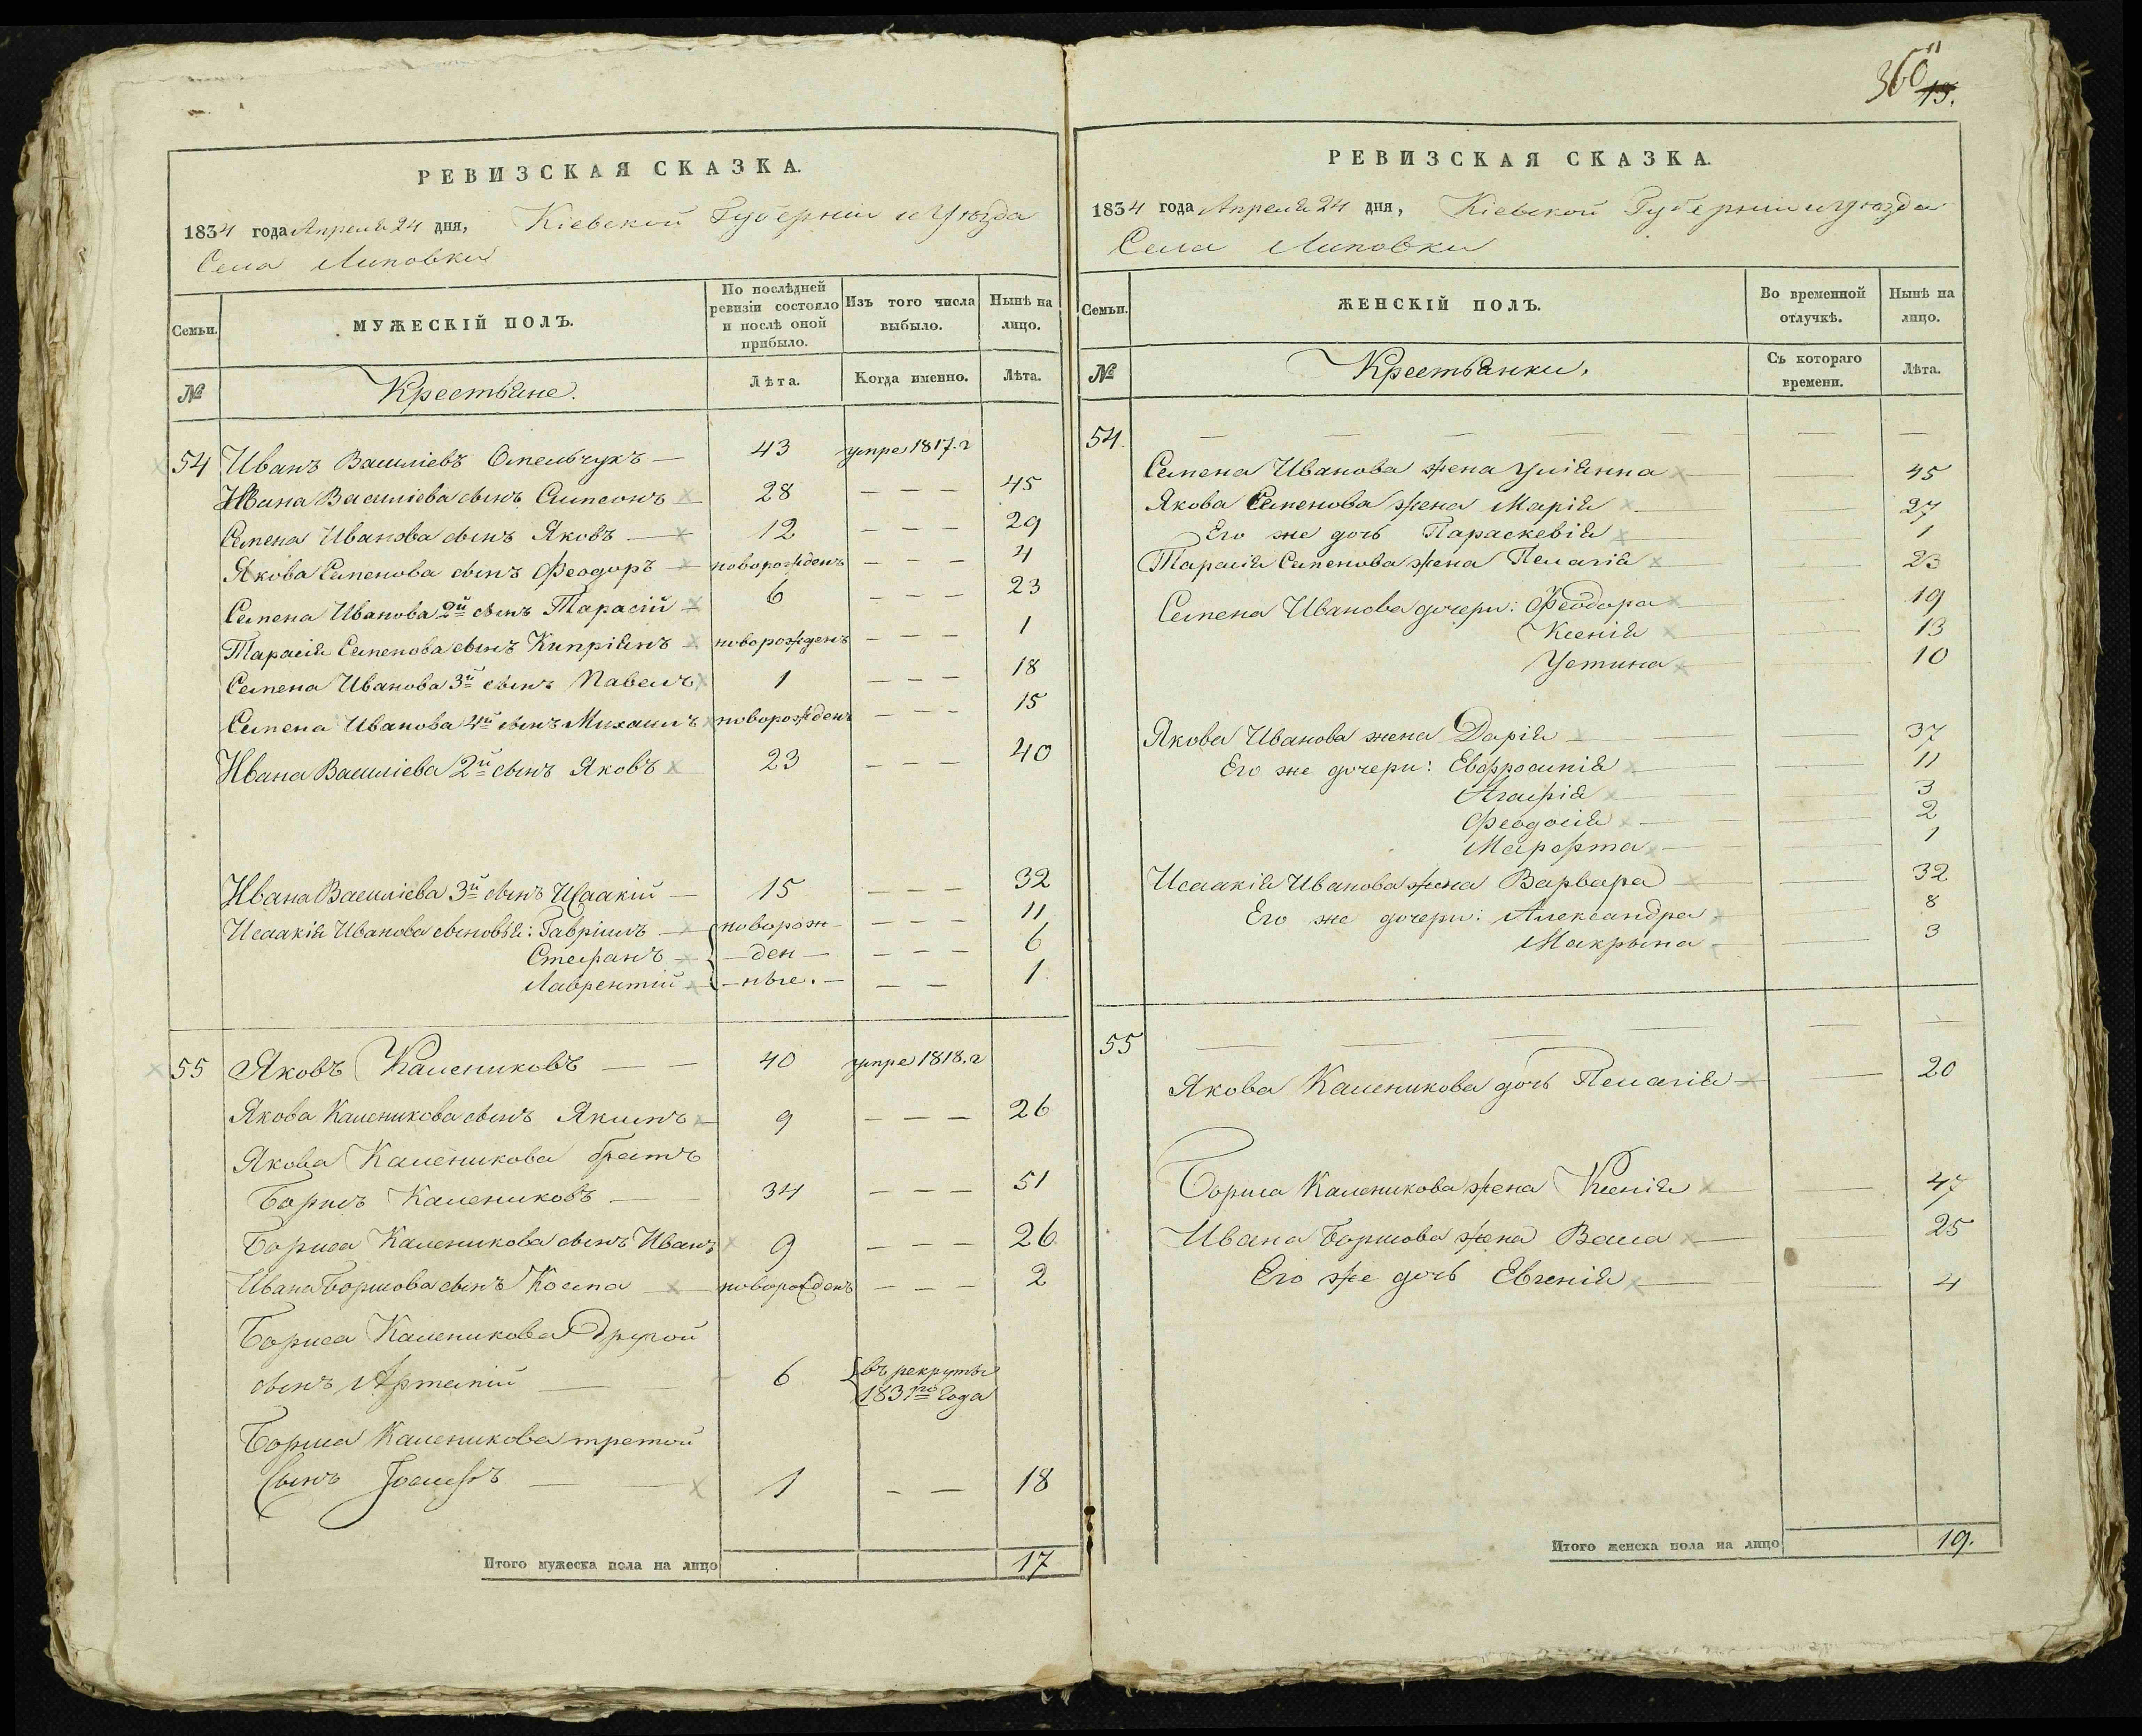 РЕВИЗСКАЯ СКАЗКА.
1834 года Апреля 24 дня, Кіевской Губерніи и Уѣзда
Села Липовки
Семьи. МУЖЕСКІЙ ПОЛЪ. По послѣдней ревизіи состояло и послѣ оной прибыло. Изъ того числа выбыло. Нынѣ на лицо.
№ Крестьяне. Лѣта. Когда именно. Лѣта.
54 Иванъ Василіевъ Омельчукъ — 43 умре 1817. г
Ивана Василіева сынъ Симеонъ — 28 — — — 45
Семена Иванова сынъ Яковъ — 12 — — — 29
Якова Семенова сынъ Феодоръ — новорожденъ — — — 4
Семена Иванова 2й сынъ Тарасій — 6 — — — 23
Тарасія Семенова сынъ Кипріянъ — новорожденъ — — — 1
Семена Иванова 3й сынъ Павелъ 1 — — — 18
Семена Иванова 4й сынъ Михаилъ новорожденъ — — — 15
Ивана Василіева 2й сынъ Яковъ 23 — — — 40
Ивана Василіева 3й сынъ Исаакій — 15 — — — 32
Исаакія Иванова сыновья: Гавріилъ — новорож- — — — 11
Стефанъ — — ден — — — — 6
Лаврентій — — ные. — — — 1
55 Яковъ Калениковъ — — 40 умре 1818. г
Якова Каленикова сынъ Якимъ — 9 — — — 26
Якова Каленикова братъ
Борисъ Калениковъ — 34 — — — 51
Бориса Каленикова сынъ Иванъ 9 — — — 26
Ивана Борисова сынъ Косма — новорожденъ — — — 2
Бориса Каленикова другой
сынъ Артемій — 6 въ рекруты
183 го Года
Бориса Каленикова третой
Сынъ Іосифъ — — 1 — — 18
Итого мужеска пола на лицо 17
360 11
13.
РЕВИЗСКАЯ СКАЗКА.
1834 года Апреля 24 дня, Кіевской Губерніи и Уѣзда
Села Липовки
Семьи. ЖЕНСКІЙ ПОЛЪ. Во временной отлучкѣ. Нынѣ на лицо.
№ Крестьянки. Съ котораго времени. Лѣта.
54. — — — — — — —
Семена Иванова жена Уліянна — — 45
Якова Семенова жена Марія — — 27
Его же дочь Параскевія — — 1
Тарасія Семенова жена Пелагія — — 23
Семена Иванова дочери: Феодора — — 19
Ксенія — — 13
Устина — — 10
Якова Иванова жена Дарія — — 37
Его же дочери: Евфросинія — — 11
Агафія — — 3
Феодосія — — 2
Марфта — — 1
Исаакія Иванова жена Варвара — — 32
Его же дочери: Александра — — 8
Макрына — — 3
55 — — — — — —
Якова Каленикова дочь Пелагія — — 20
Бориса Каленикова жена Ксенія — — 47
Ивана Борисова жена Васса — — 25
Его же дочь Евгенія — — 4
Итого женска пола на лицо 19.